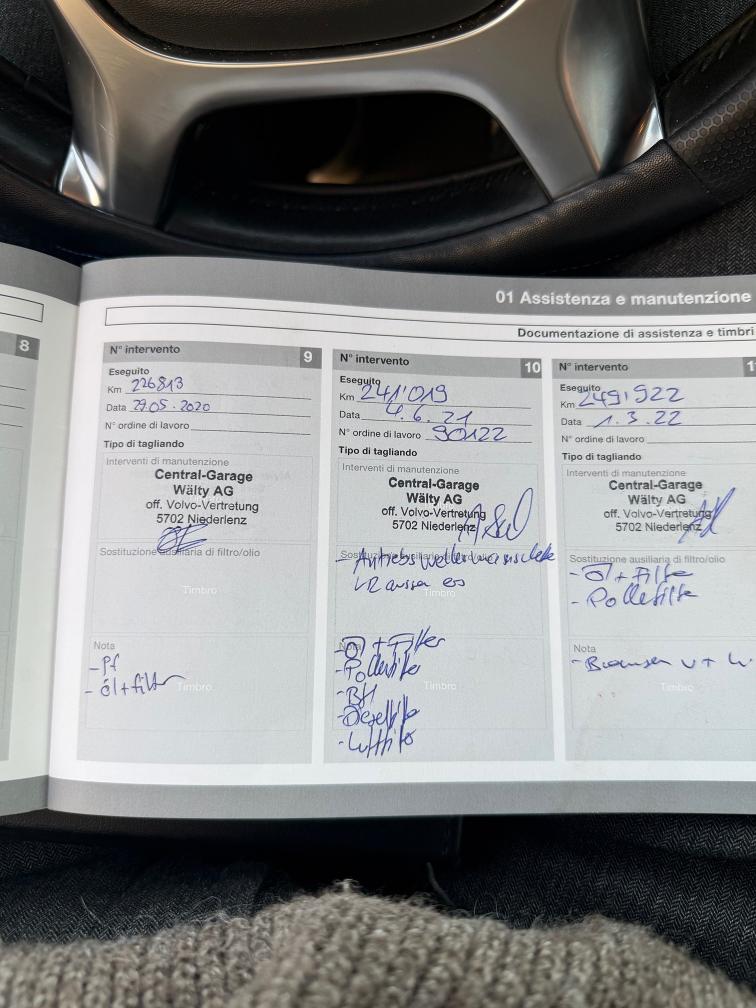 01 Assistenza e manutenzione
Documentazione di assistenza e timbri
8
N° intervento 9
Eseguito
Km 226813
Data 29.05.2020
N° ordine di lavoro
Tipo di tagliando
Interventi di manutenzione
Central-Garage
Wälty AG
off. Volvo-Vertretung
5702 Niederlenz
Sostituzione ausiliaria di filtro/olio
Timbro
Nota
- Pf
- öl+filter
Timbro
N° intervento 10
Eseguito
Km 241'019
Data 4.6.21
N° ordine di lavoro 90122
Tipo di tagliando
Interventi di manutenzione
Central-Garage
Wälty AG
off. Volvo-Vertretung
5702 Niederlenz
Sostituzione ausiliaria di filtro/olio
- Antriebswellenmanschette
aussen
Timbro
Nota
- Öl + Filter
- Pollenfilter
- BH
- Dieselfilter
- Luftfilter
Timbro
N° intervento 11
Eseguito
Km 249'522
Data 1.3.22
N° ordine di lavoro
Tipo di tagliando
Interventi di manutenzione
Central-Garage
Wälty AG
off. Volvo-Vertretung
5702 Niederlenz
Sostituzione ausiliaria di filtro/olio
- Öl + Filter
- Pollenfilter
Nota
- Bremsen v + h
Timbro